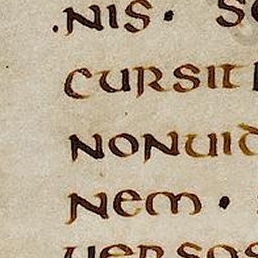 .NIS·
CURSIT
NONUID
NEM·
UERSOS